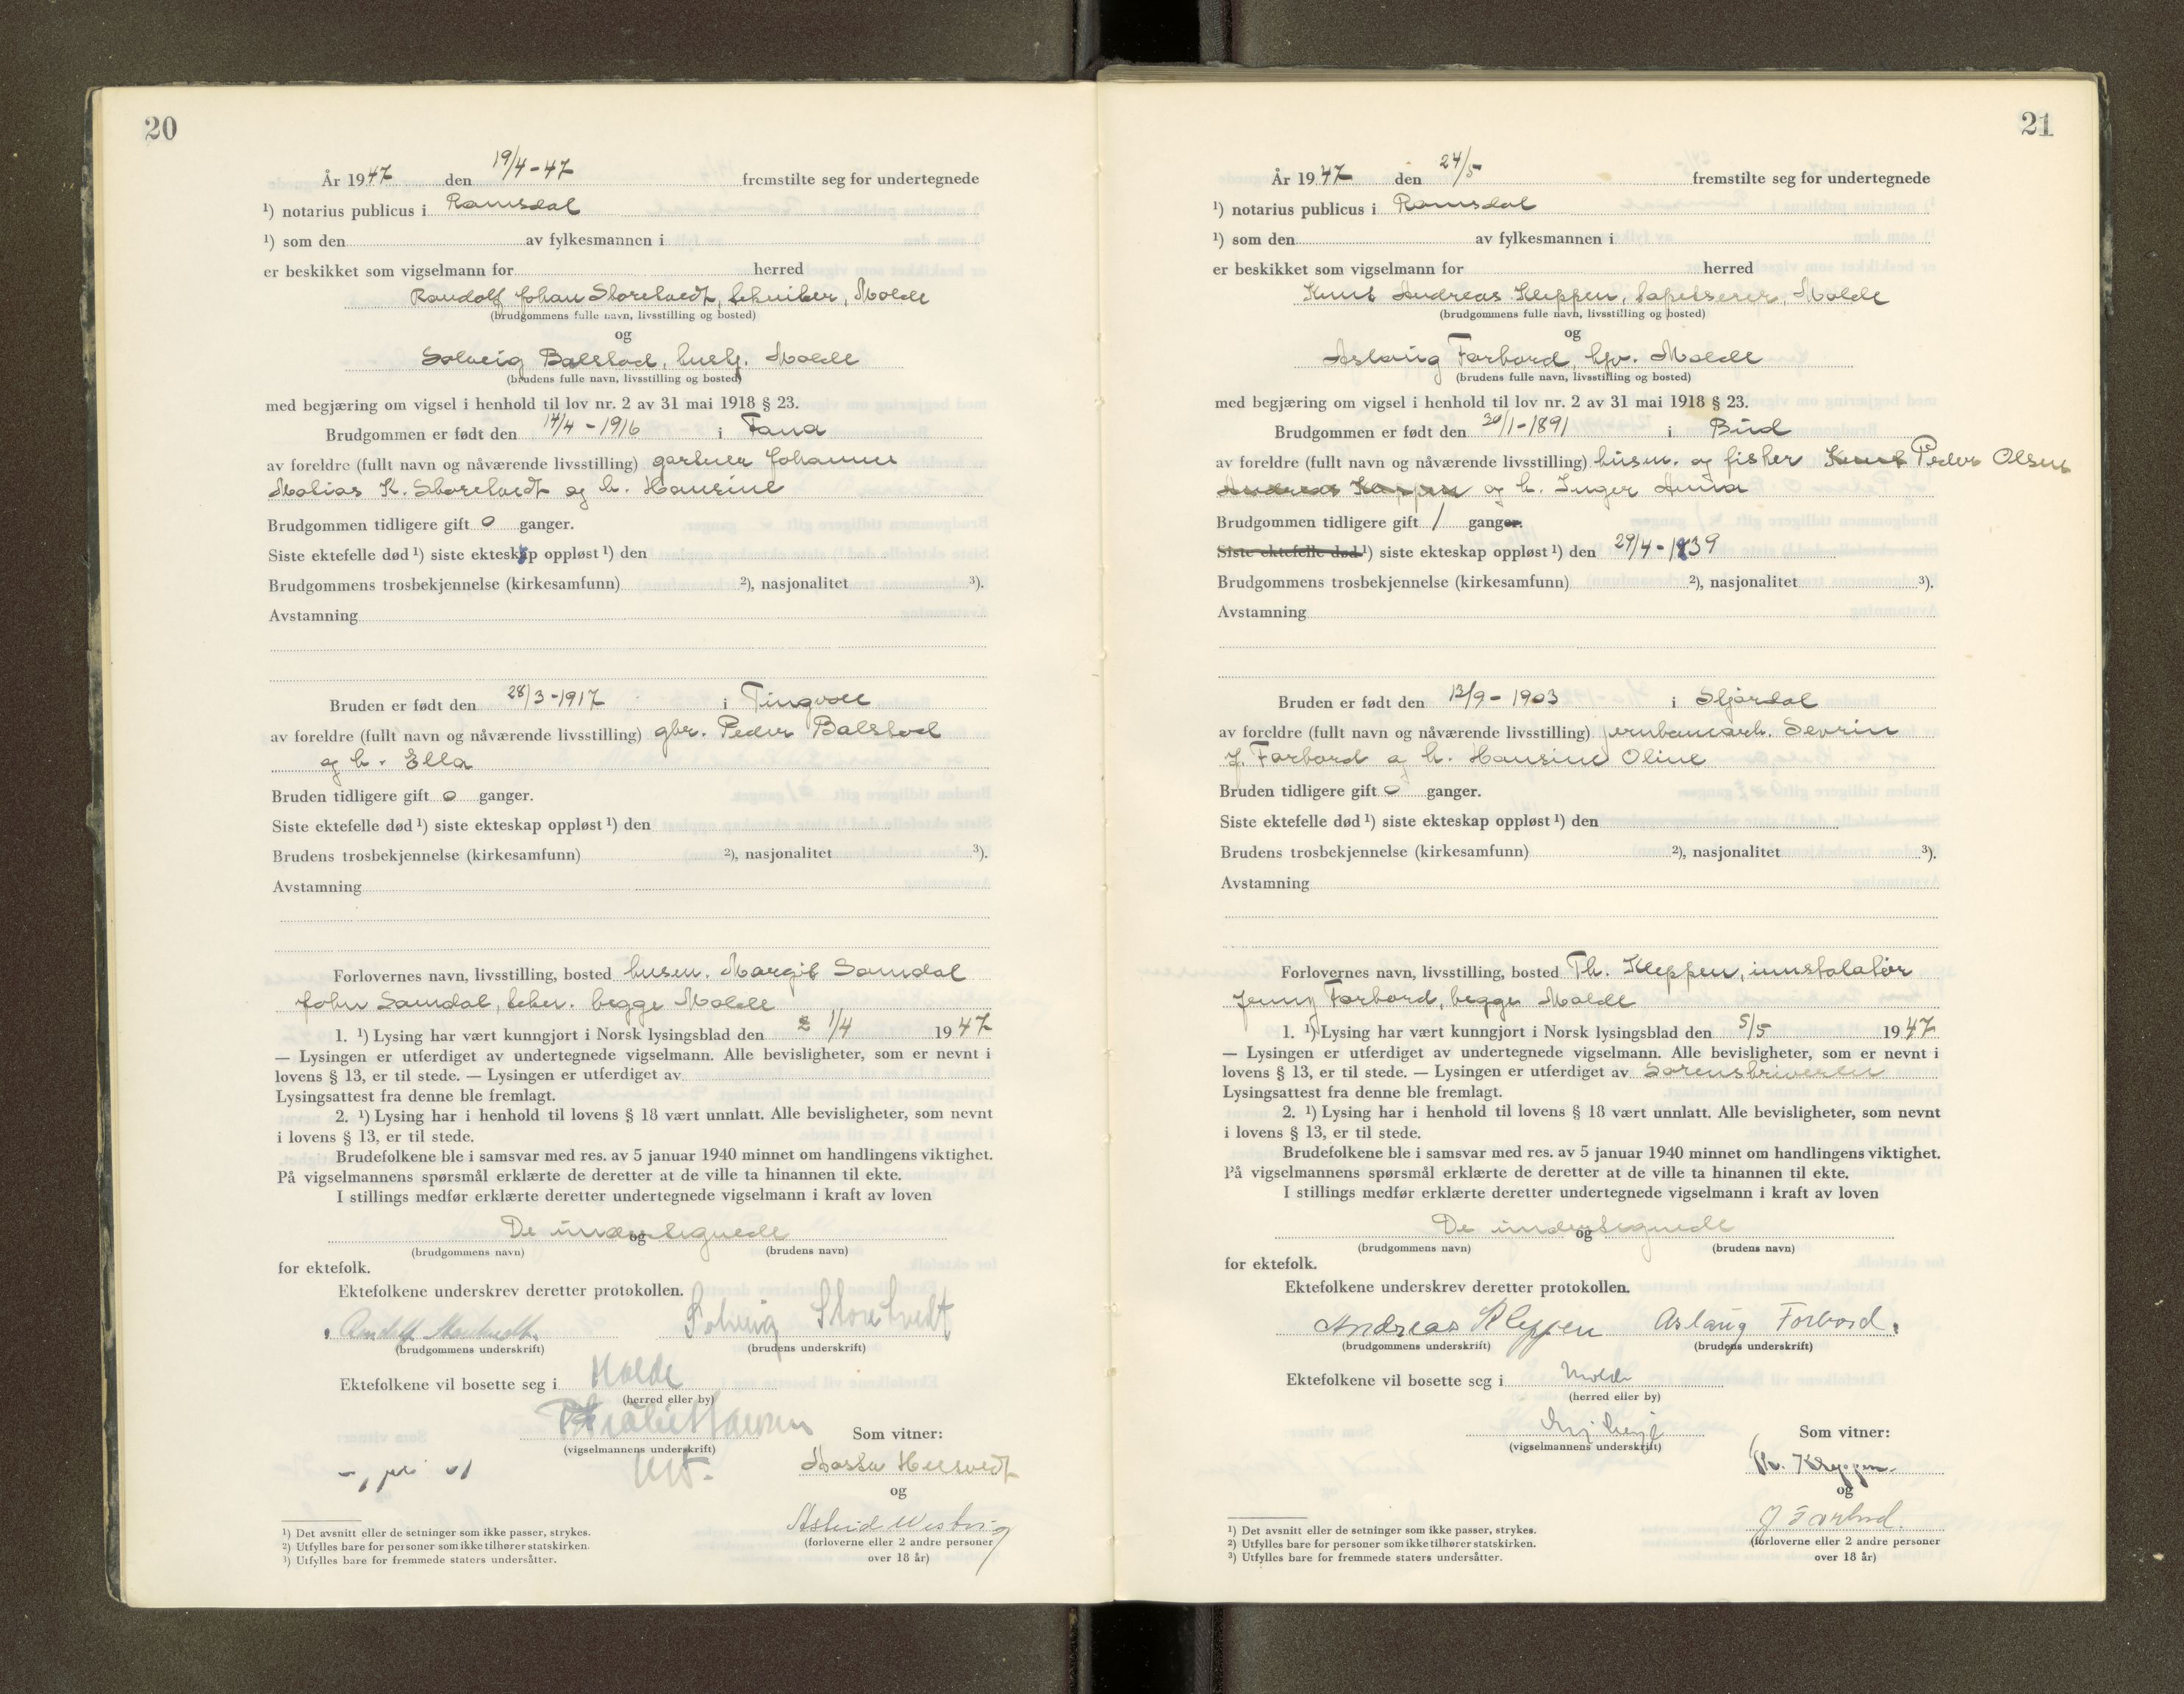 20
År 1947 den 19/4-47 fremstilte seg for undertegnede
¹) notarius publicus i Romsdal
¹) som den av fylkesmannen i
er beskikket som vigselmann for herred
Randolf Johan Storetvedt, tekniker, Molde
(brudgommens fulle navn, livsstilling og bosted)
og
Solveig Balstad, hush. Molde
(brudens fulle navn, livsstilling og bosted)
med begjæring om vigsel i henhold til lov nr. 2 av 31 mai 1918 § 23.
Brudgommen er født den 14/4-1916 i Fana
av foreldre (fullt navn og nåværende livsstilling) gartner Johannes
Mobias K. Storetvedt og h. Hansine
Brudgommen tidligere gift 0 ganger.
Siste ektefelle død ¹) siste ekteskap oppløst ¹) den
Brudgommens trosbekjennelse (kirkesamfunn) ²), nasjonalitet ³).
Avstamning
Bruden er født den 28/3-1917 i Tingvoll
av foreldre (fullt navn og nåværende livsstilling) gbr. Peder Balstad
og h. Ella
Bruden tidligere gift 0 ganger.
Siste ektefelle død ¹) siste ekteskap oppløst ¹) den
Brudens trosbekjennelse (kirkesamfunn) ²), nasjonalitet ³).
Avstamning
Forlovernes navn, livsstilling, bosted husm. Margit Samdal
John Samdal, tekn. begge Molde
1. ¹) Lysing har vært kunngjort i Norsk lysingsblad den 1/4 1947
— Lysingen er utferdiget av undertegnede vigselmann. Alle bevisligheter, som er nevnt i
lovens § 13, er til stede. — Lysingen er utferdiget av
Lysingsattest fra denne ble fremlagt.
2. ¹) Lysing har i henhold til lovens § 18 vært unnlatt. Alle bevisligheter, som nevnt
i lovens § 13, er til stede.
Brudefolkene ble i samsvar med res. av 5 januar 1940 minnet om handlingens viktighet.
På vigselmannens spørsmål erklærte de deretter at de ville ta hinannen til ekte.
I stillings medfør erklærte deretter undertegnede vigselmann i kraft av loven
De undertegnede
og
(brudgommens navn) (brudens navn)
for ektefolk.
Ektefolkene underskrev deretter protokollen.
Randolf Storetvedt. Solveig Storetvedt
(brudgommens underskrift) (brudens underskrift)
Ektefolkene vil bosette seg i Molde
(herred eller by)
(vigselmannens underskrift)
Som vitner:
og
Astrid
(forloverne eller 2 andre personer
over 18 år)
¹) Det avsnitt eller de setninger som ikke passer, strykes.
²) Utfylles bare for personer som ikke tilhører statskirken.
³) Utfylles bare for fremmede staters undersåtter.
21
År 1947 den 24/5 fremstilte seg for undertegnede
¹) notarius publicus i Romsdal
¹) som den av fylkesmannen i
er beskikket som vigselmann for herred
Knut Andreas Kleppen, tapetserer, Molde
(brudgommens fulle navn, livsstilling og bosted)
og
Aslaug Forbord, hfr. Molde
(brudens fulle navn, livsstilling og bosted)
med begjæring om vigsel i henhold til lov nr. 2 av 31 mai 1918 § 23.
Brudgommen er født den 30/1-1891 i Bud
av foreldre (fullt navn og nåværende livsstilling) husm. og fisker Knut Peder Olsen
Andreas Kleppen og h. Inger Anna
Brudgommen tidligere gift 1 ganger.
Siste ektefelle død ¹) siste ekteskap oppløst ¹) den 29/4-1939
Brudgommens trosbekjennelse (kirkesamfunn) ²), nasjonalitet ³).
Avstamning
Bruden er født den 13/9-1903 i Stjørdal
av foreldre (fullt navn og nåværende livsstilling) jernbanearb. Sevrin
J. Forbord og h. Hansine Oline
Bruden tidligere gift 0 ganger.
Siste ektefelle død ¹) siste ekteskap oppløst ¹) den
Brudens trosbekjennelse (kirkesamfunn) ²), nasjonalitet ³).
Avstamning
Forlovernes navn, livsstilling, bosted Th. Kleppen, innstalatør
Jenny Forbord, begge Molde
1. ¹) Lysing har vært kunngjort i Norsk lysingsblad den 5/5 1947
— Lysingen er utferdiget av undertegnede vigselmann. Alle bevisligheter, som er nevnt i
lovens § 13, er til stede. — Lysingen er utferdiget av Sorenskriveren
Lysingsattest fra denne ble fremlagt.
2. ¹) Lysing har i henhold til lovens § 18 vært unnlatt. Alle bevisligheter, som nevnt
i lovens § 13, er til stede.
Brudefolkene ble i samsvar med res. av 5 januar 1940 minnet om handlingens viktighet.
På vigselmannens spørsmål erklærte de deretter at de ville ta hinannen til ekte.
I stillings medfør erklærte deretter undertegnede vigselmann i kraft av loven
De undertegnede
og
(brudgommens navn) (brudens navn)
for ektefolk.
Ektefolkene underskrev deretter protokollen.
Andreas Kleppen Aslaug Forbord.
(brudgommens underskrift) (brudens underskrift)
Ektefolkene vil bosette seg i Molde
(herred eller by)
(vigselmannens underskrift)
Som vitner:
Th. Kleppen.
og
J Forbord.
(forloverne eller 2 andre personer
over 18 år)
¹) Det avsnitt eller de setninger som ikke passer, strykes.
²) Utfylles bare for personer som ikke tilhører statskirken.
³) Utfylles bare for fremmede staters undersåtter.